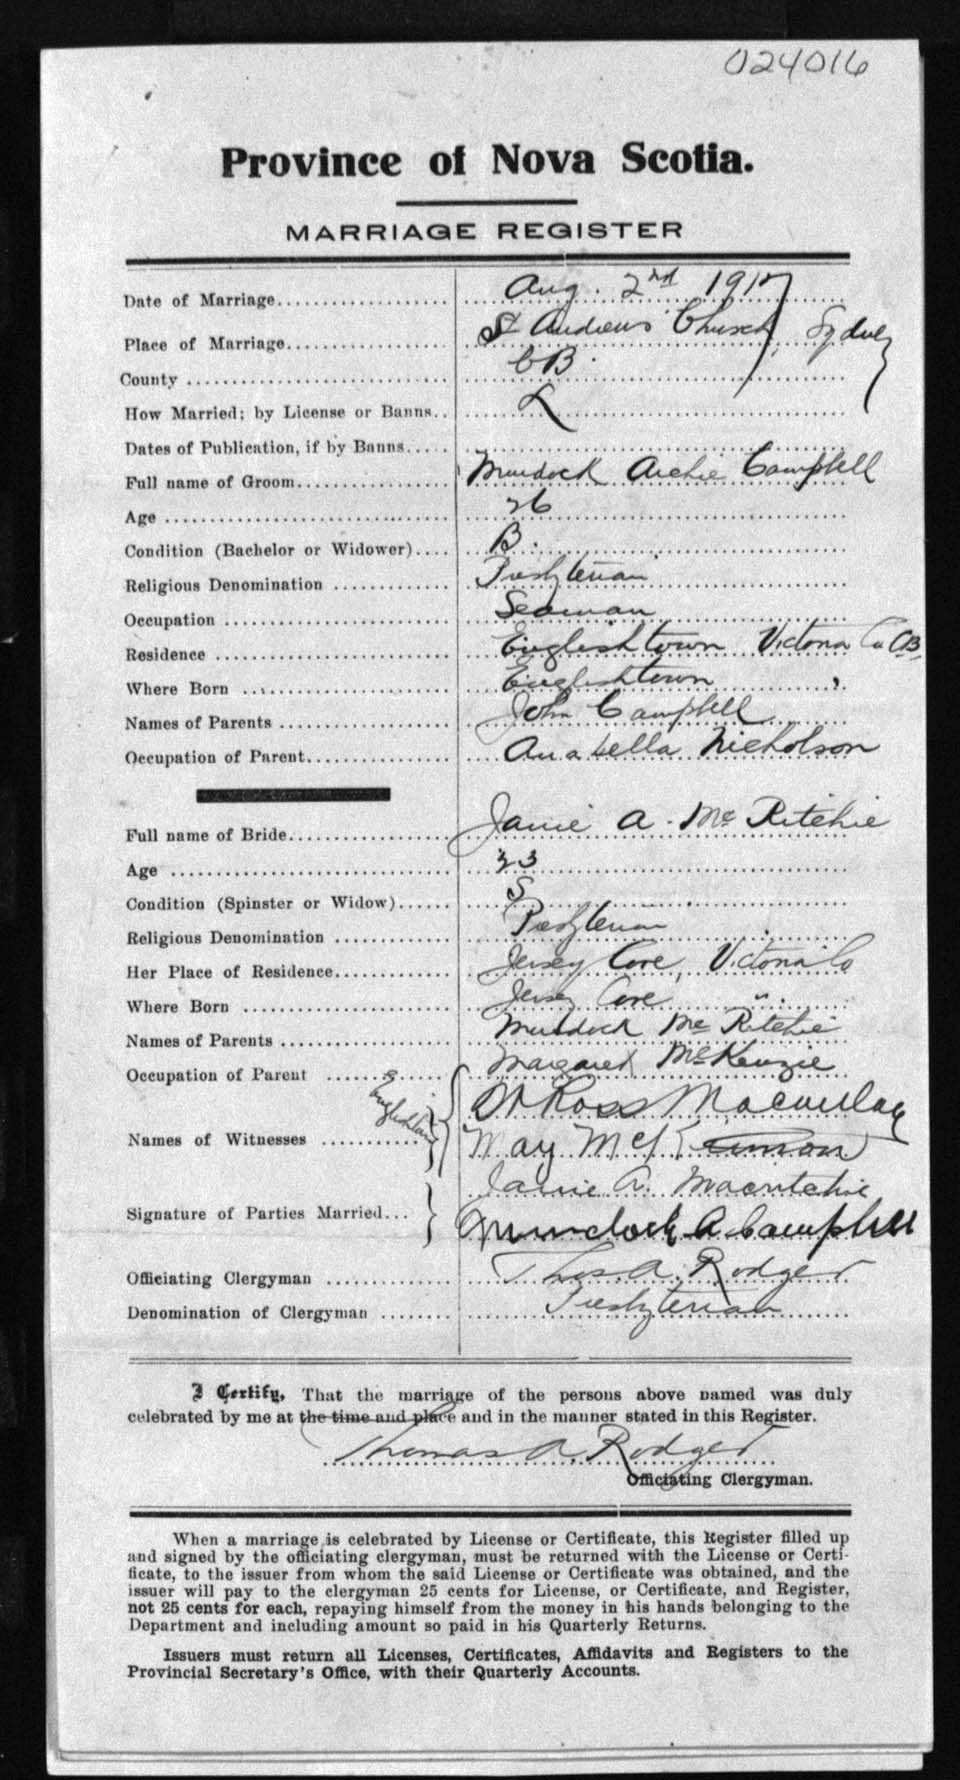 024016
Province of Nova Scotia.
MARRIAGE REGISTER
Date of Marriage Aug. 2nd 1917
Place of Marriage St Andrews Church, Sydney
County CB.
How Married; by License or Banns L
Dates of Publication, if by Banns
Full name of Groom Murdock Archie Campbell
Age 26
Condition (Bachelor or Widower) B.
Religious Denomination Presbyterian
Occupation Seaman
Residence Englishtown Victoria Co CB,
Where Born Englishtown "
Names of Parents John Campbell
Occupation of Parent Anabella Nicholson
Full name of Bride Janie A. Mc Ritchie
Age 23
Condition (Spinster or Widow) S
Religious Denomination Presbyterian
Her Place of Residence Jersey Cove, Victoria Co
Where Born Jersey Cove "
Names of Parents Murdock Mc Ritchie
Occupation of Parent Margaret McKenzie
Englishtown
Ross Macaulay
Names of Witnesses May McKinnon
Janie A. Macritchie
Signature of Parties Married Murdock A Campbell
Officiating Clergyman Thos. A. Rodger
Denomination of Clergyman Presbyterian
I Certify, That the marriage of the persons above named was duly
celebrated by me at the time and place and in the manner stated in this Register.
Thomas A. Rodger
Officiating Clergyman.
When a marriage is celebrated by License or Certificate, this Register filled up
and signed by the officiating clergyman, must be returned with the License or Certi-
ficate, to the issuer from whom the said License or Certificate was obtained, and the
issuer will pay to the clergyman 25 cents for License, or Certificate, and Register,
not 25 cents for each, repaying himself from the money in his hands belonging to the
Department and including amount so paid in his Quarterly Returns.
Issuers must return all Licenses, Certificates, Affidavits and Registers to the
Provincial Secretary's Office, with their Quarterly Accounts.